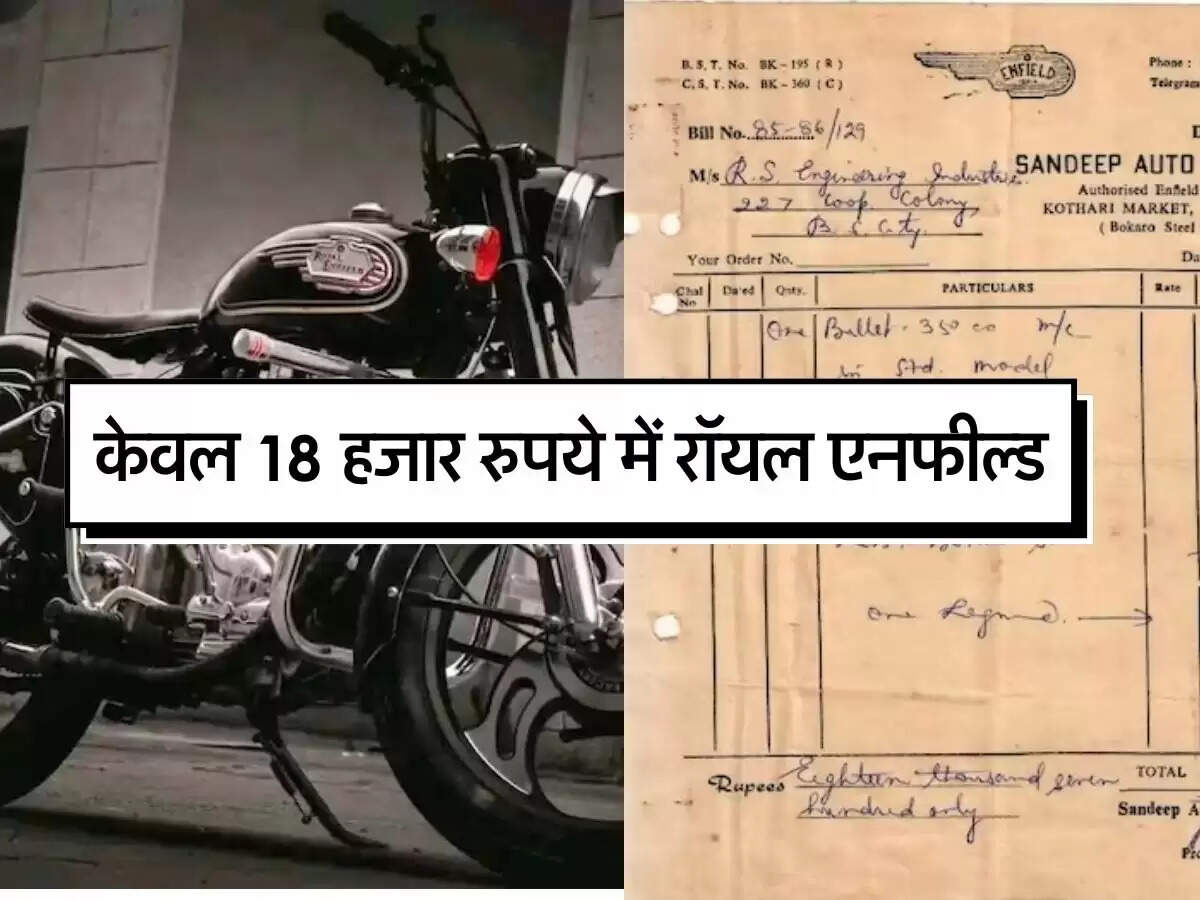 ROYAL
ENFIELD
केवल 18 हजार रुपये में रॉयल एनफील्ड
B. S. T. No. BK - 195 ( R )
C. S. T. No. BK - 360 ( C )
ENFIELD
Phone :
Telegram
Bill No. 85-86/129
M/s R. S. Engineering Industries.
227 Coop. Colony,
B. S. City.
SANDEEP AUTO
Authorised Enfield
KOTHARI MARKET,
( Bokaro Steel
Your Order No.
Da
Chal No
Dated
Qnty.
PARTICULARS
Rate
One Bullet. 350 cc m/c
in Std. model
one Legend. →
Rupees Eighteen thousand seven
hundred only
TOTAL
Sandeep A